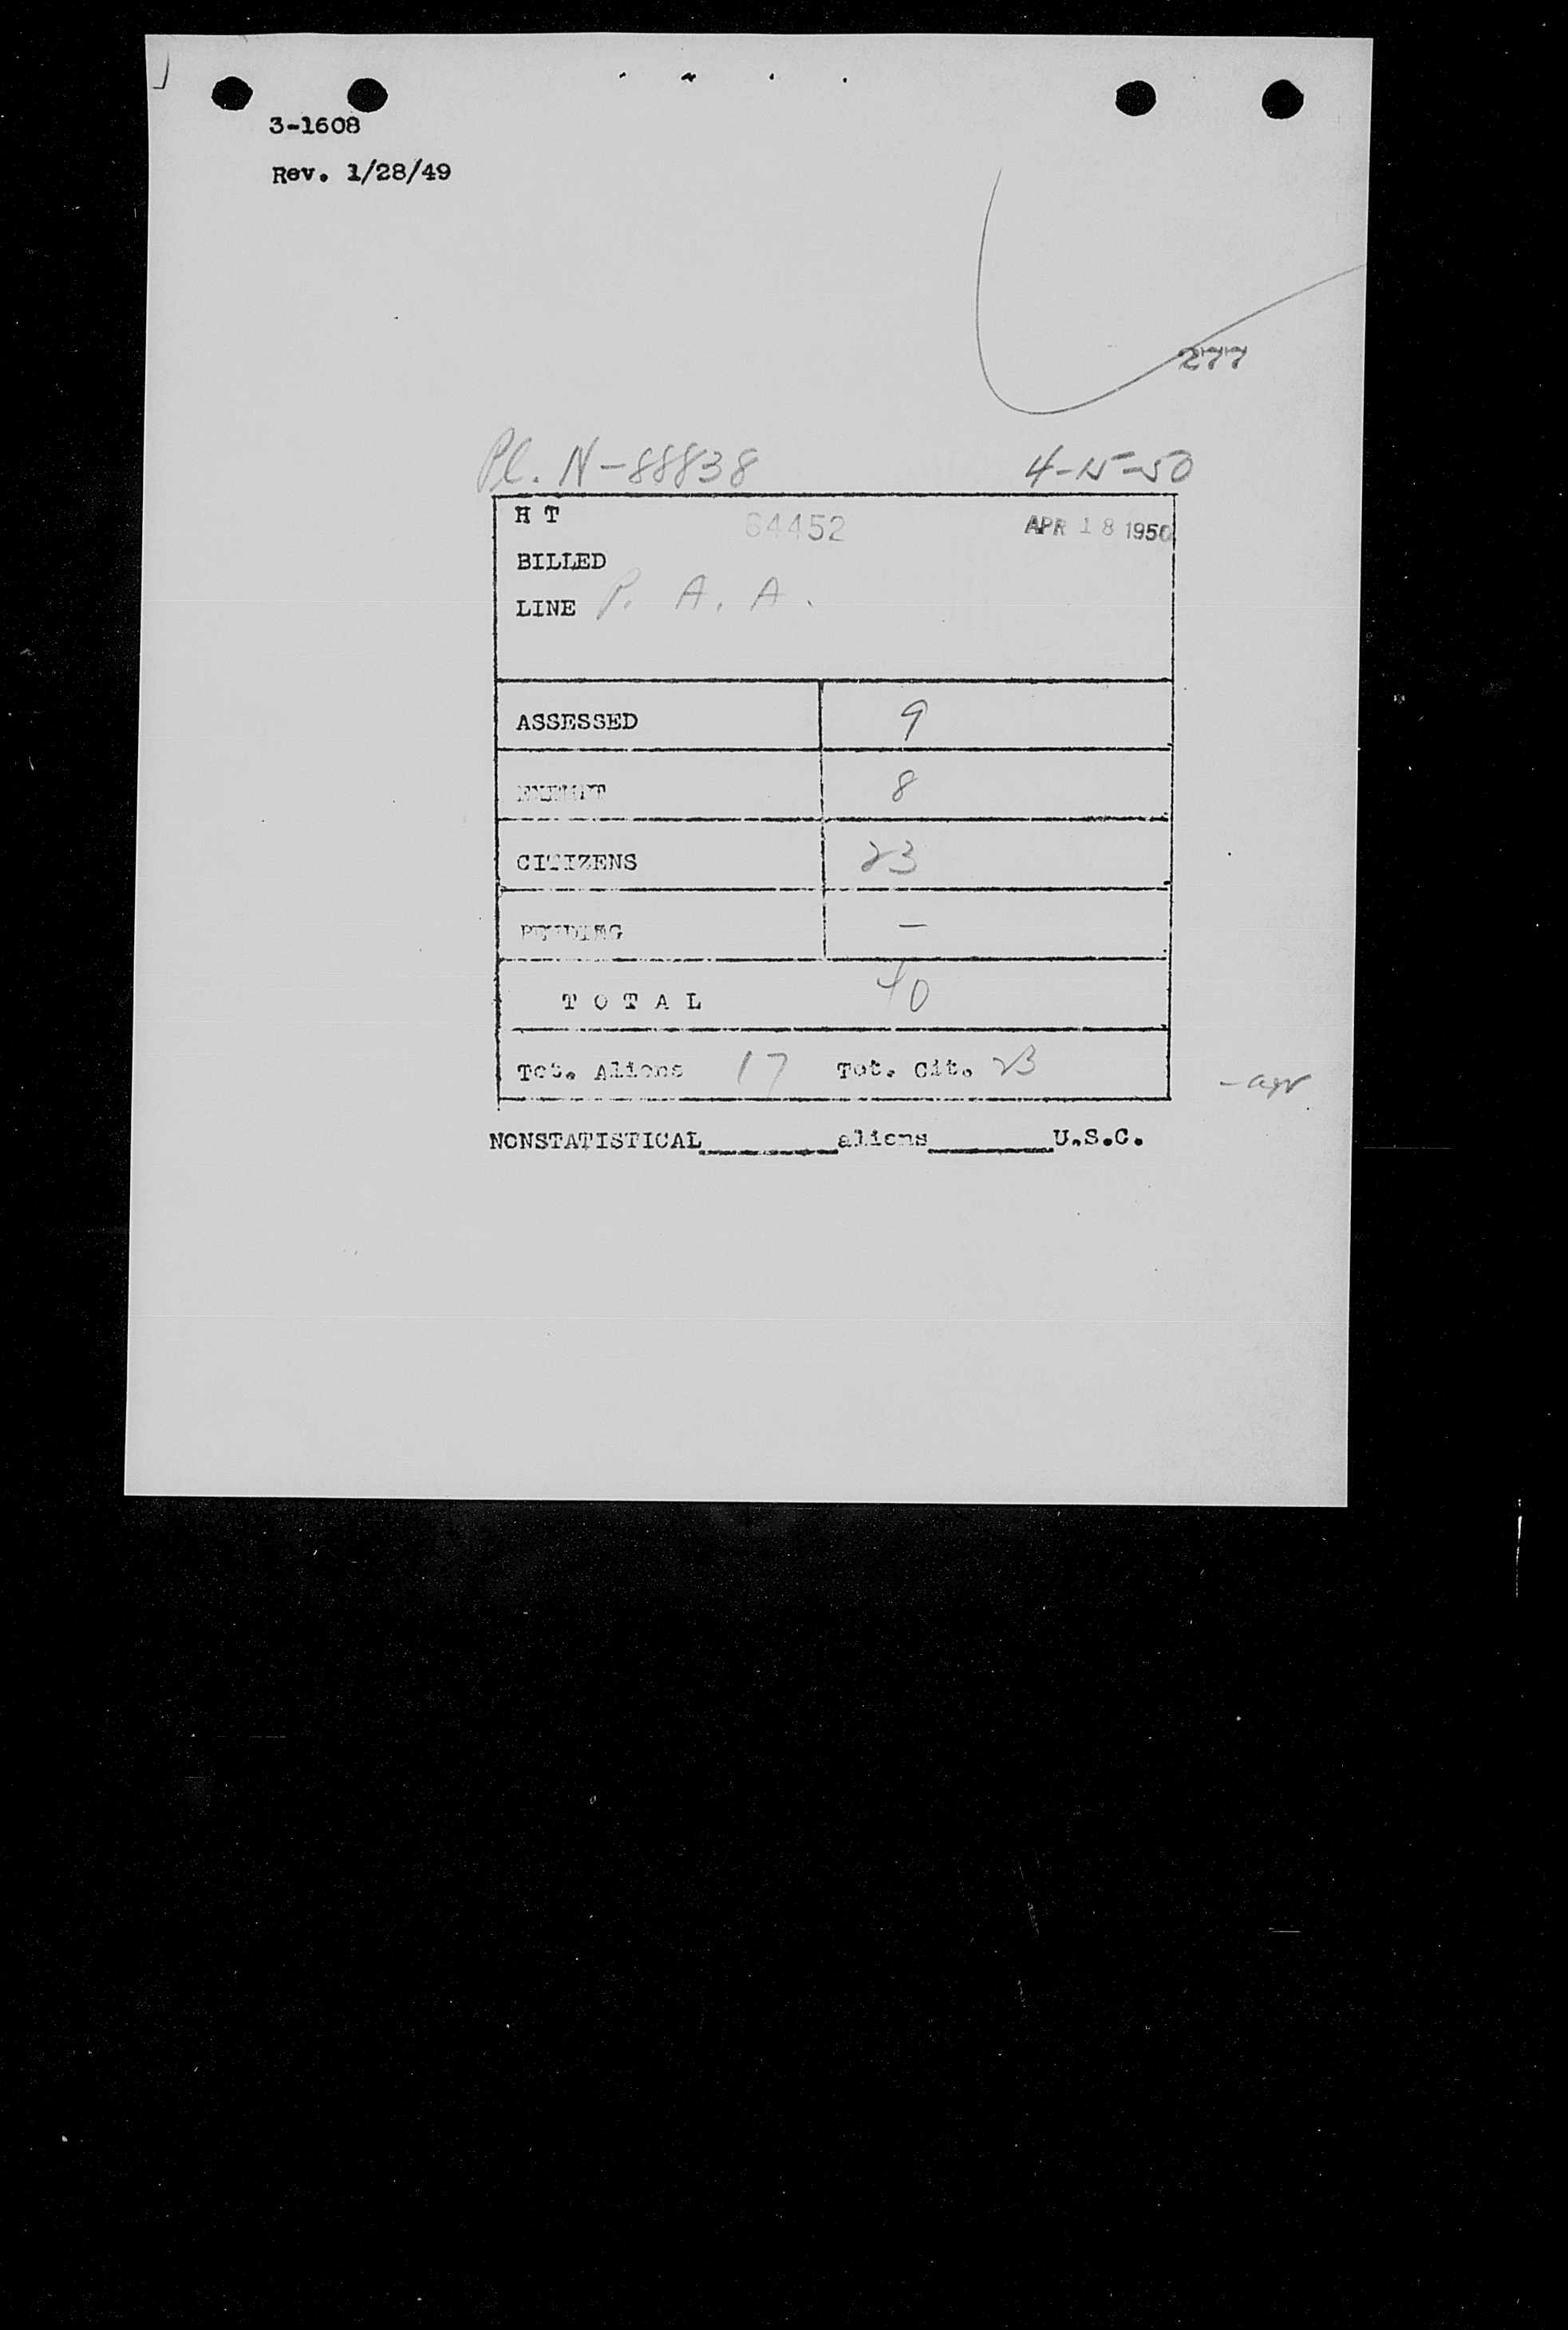 3-1608
Rev. 1/28/49
277
Pl. N-88838 4-15-50
H T 64452 APR 18 1950
BILLED
LINE P. A. A.
ASSESSED 9
EXEMPT 8
CITIZENS 23
PENDING —
T O T A L 40
Tot. Aliens 17 Tot. Cit. 23
NONSTATISTICAL________aliens________U.S.C.